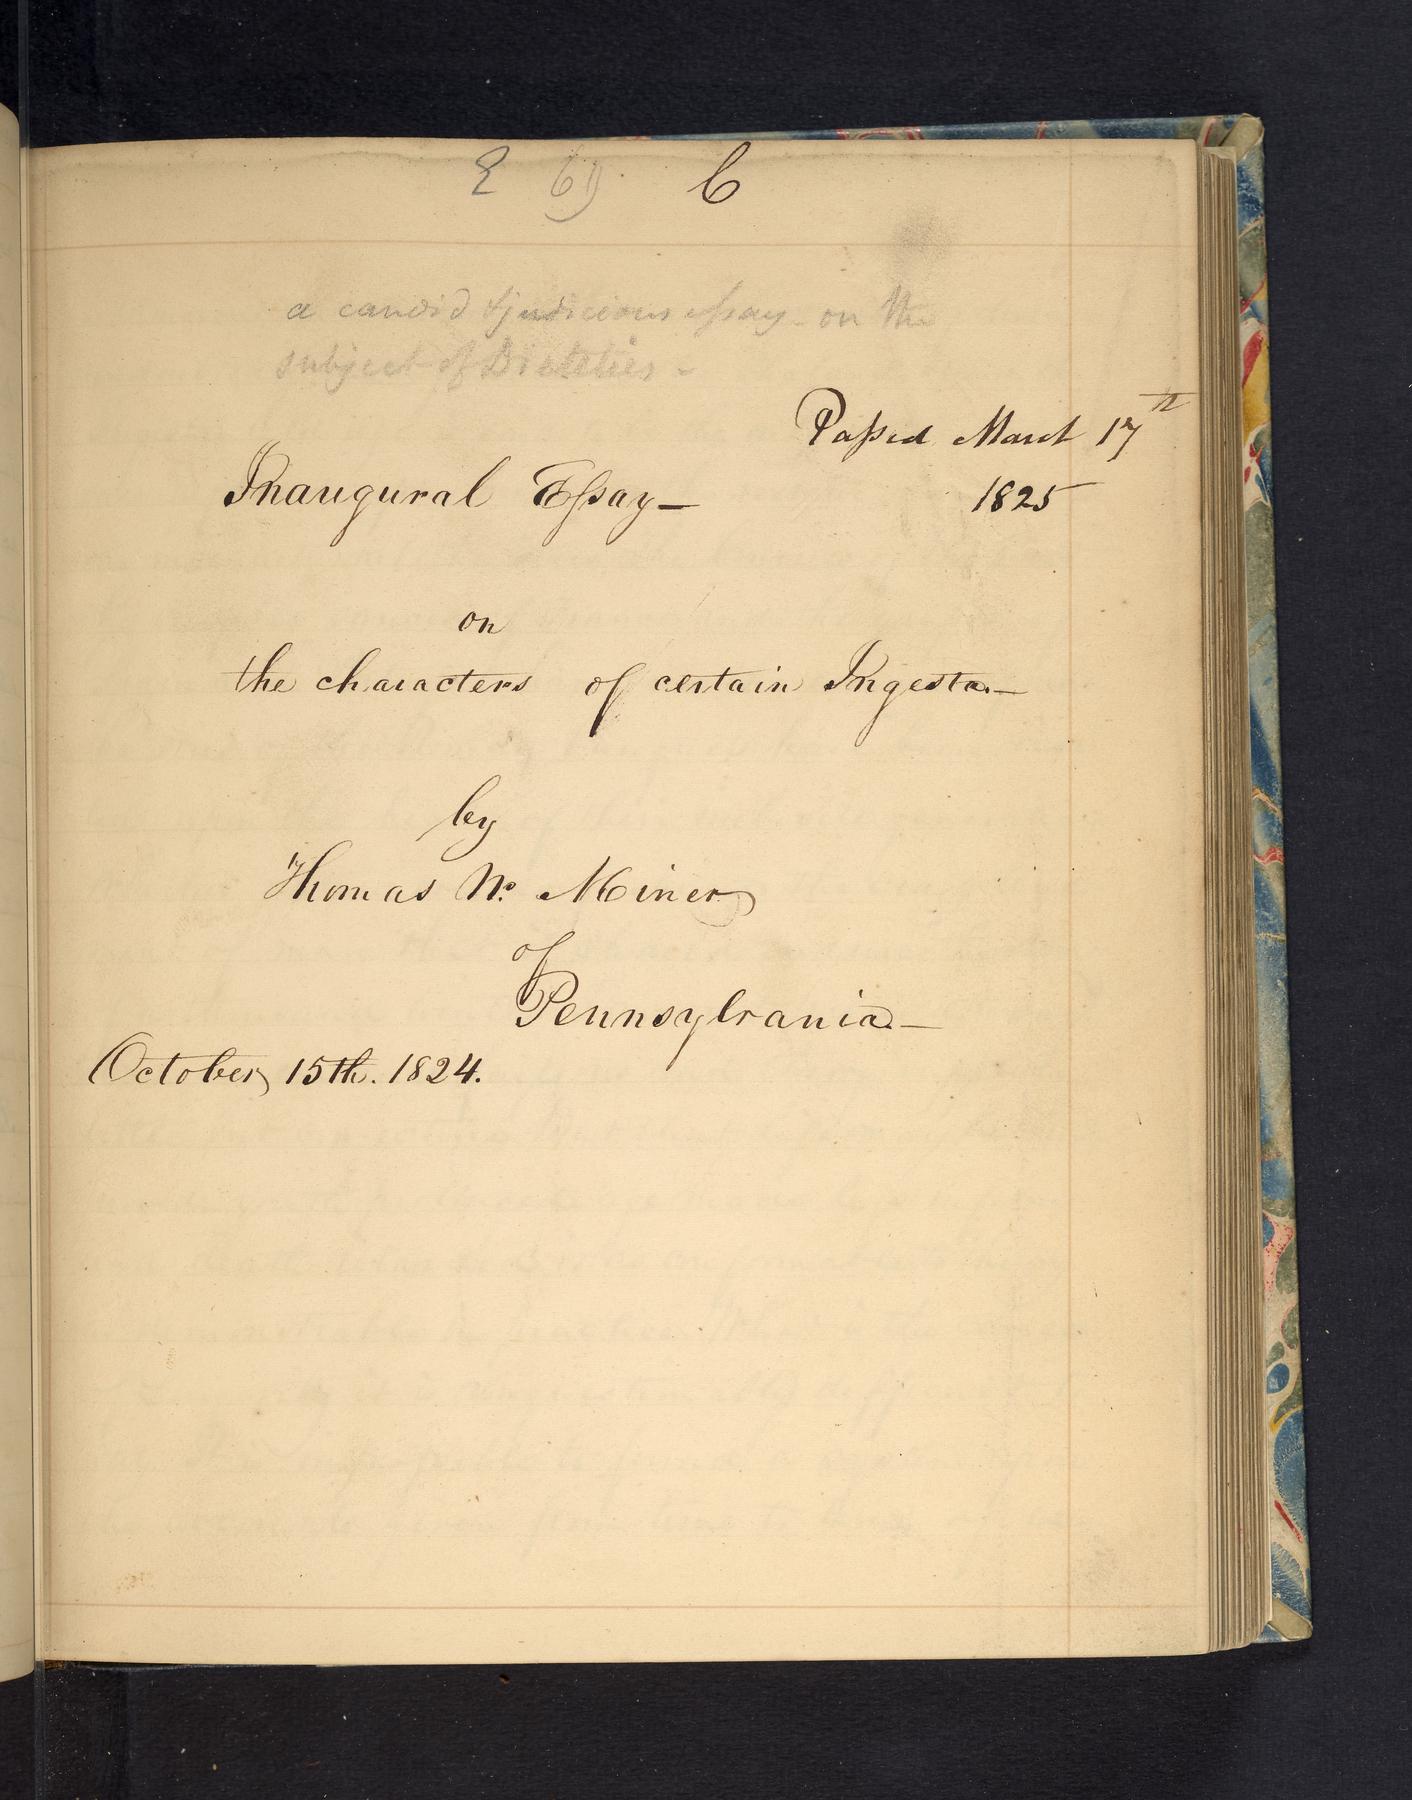 a candid & judicious essay - on the
subject of Dietetics -
Passed March 17th
Inaugural Essay —
1825
on
the characters of certain Ingesta. —
by
Thomas W. Miner
of
Pennsylvania. —
October 15th. 1824.